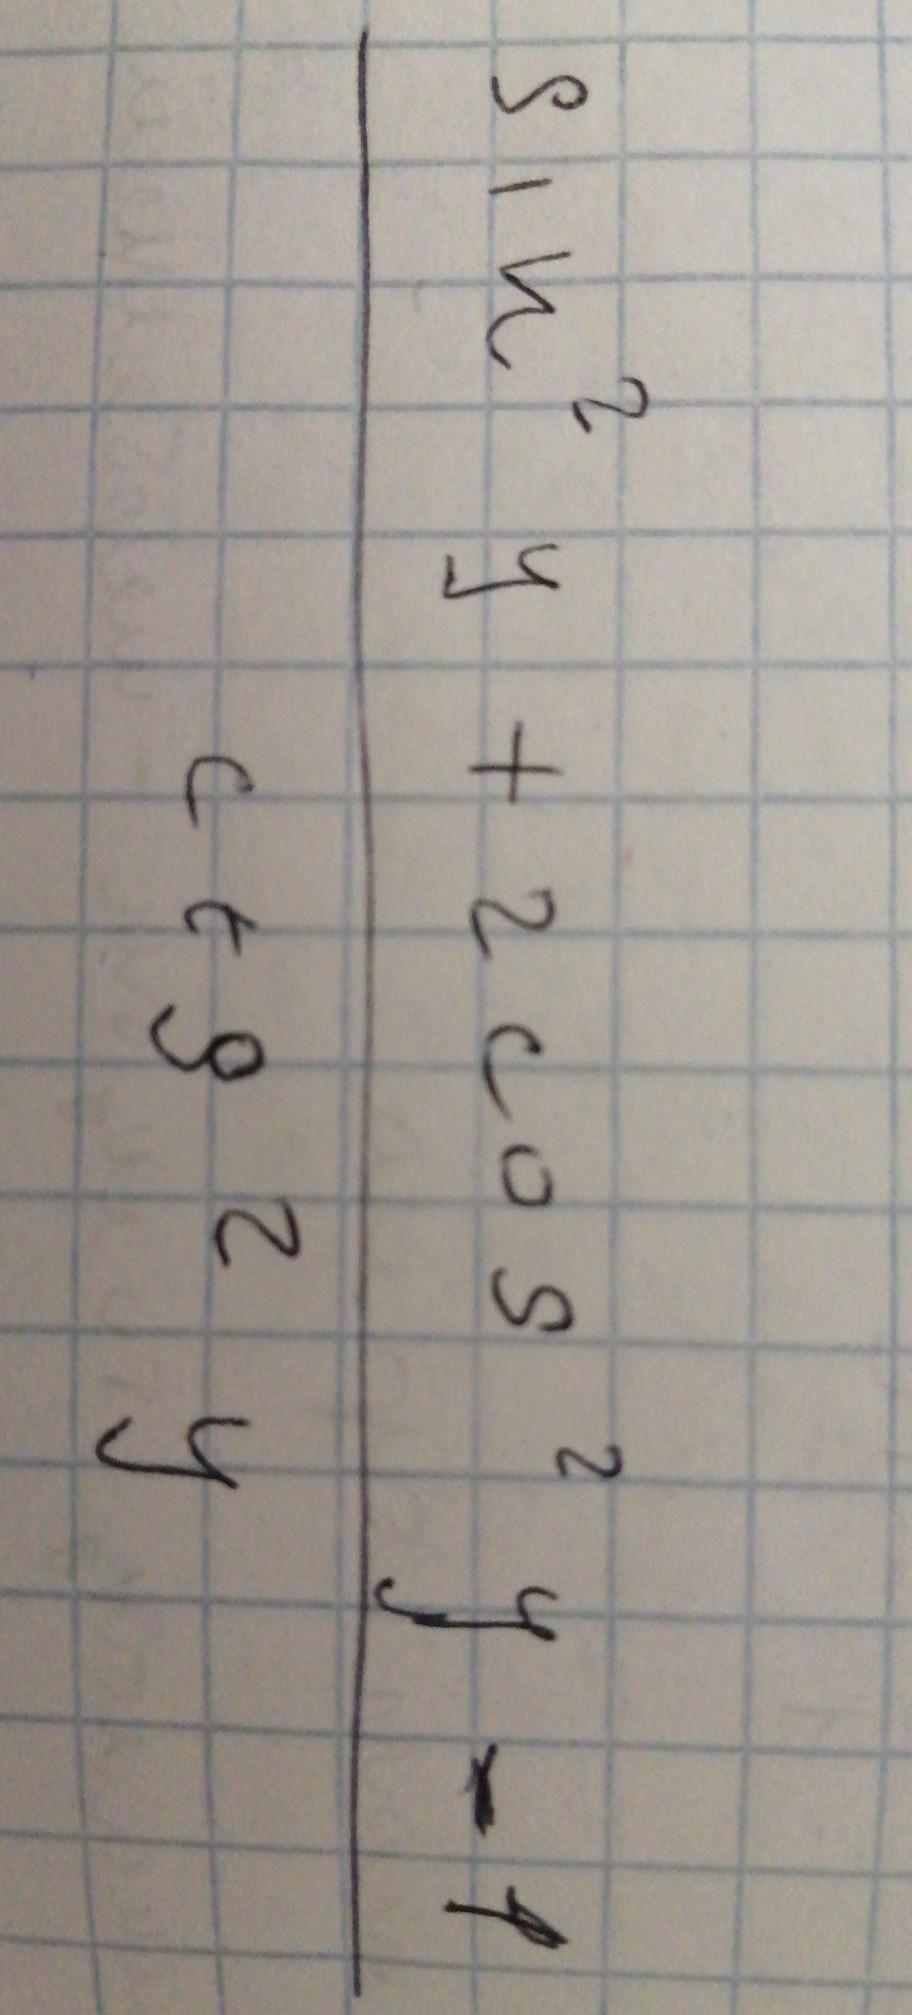 sin² y + 2cos² y - 1
ctg 2 y